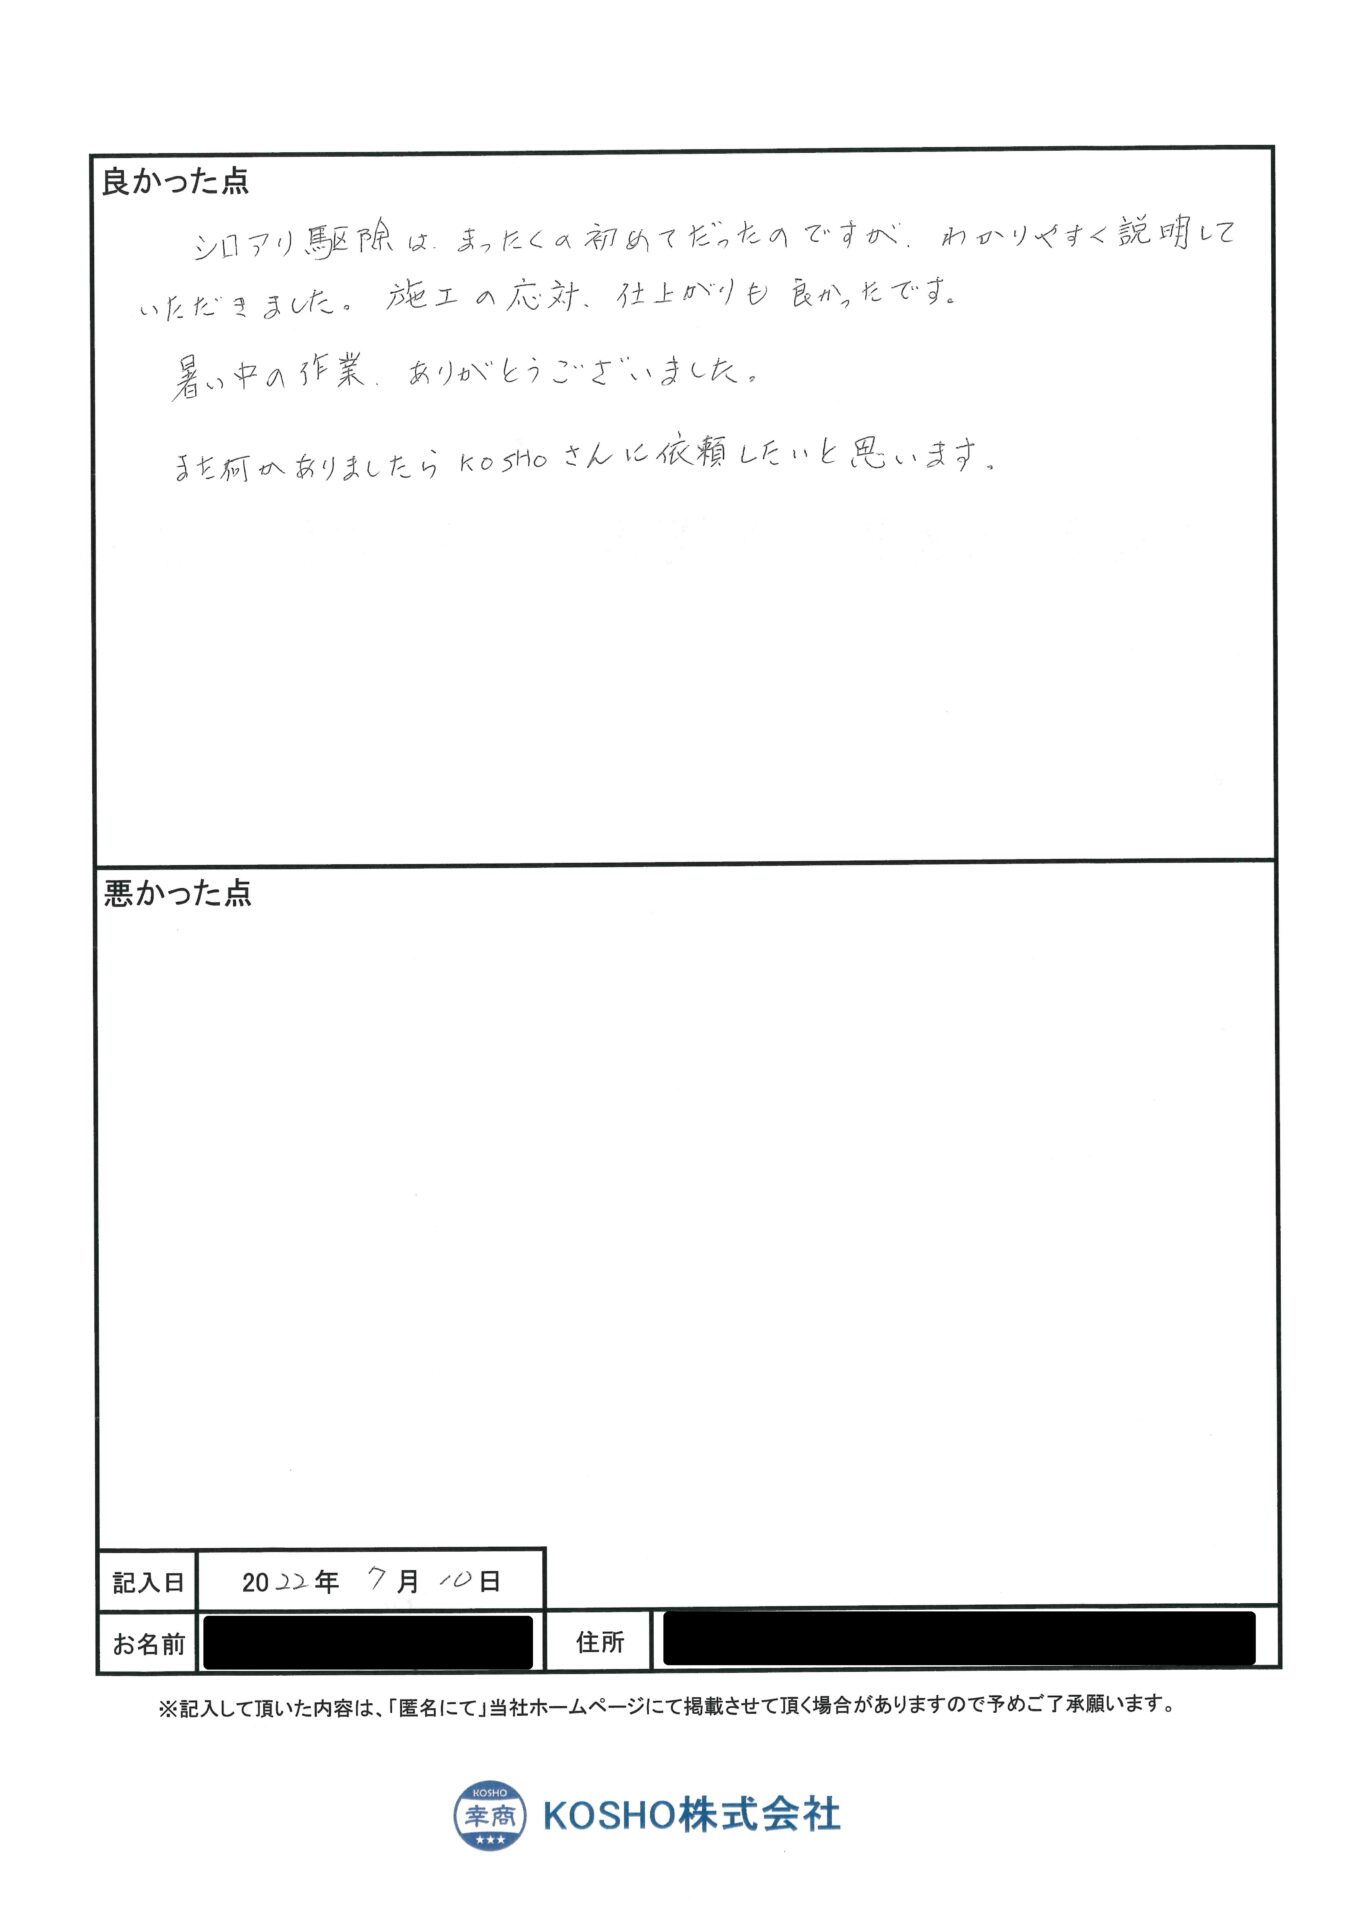 良かった点
シロアリ駆除は、まったくの初めてだったのですが、わかりやすく説明して
いただきました。施工の応対、仕上がりも良かったです。
暑い中の作業、ありがとうございました。
また何かありましたらKOSHOさんに依頼したいと思います。
悪かった点
記入日 2022年 7月 10日
お名前 住所
※記入して頂いた内容は、「匿名にて」当社ホームページにて掲載させて頂く場合がありますので予めご了承願います。
KOSHO
幸商
KOSHO株式会社